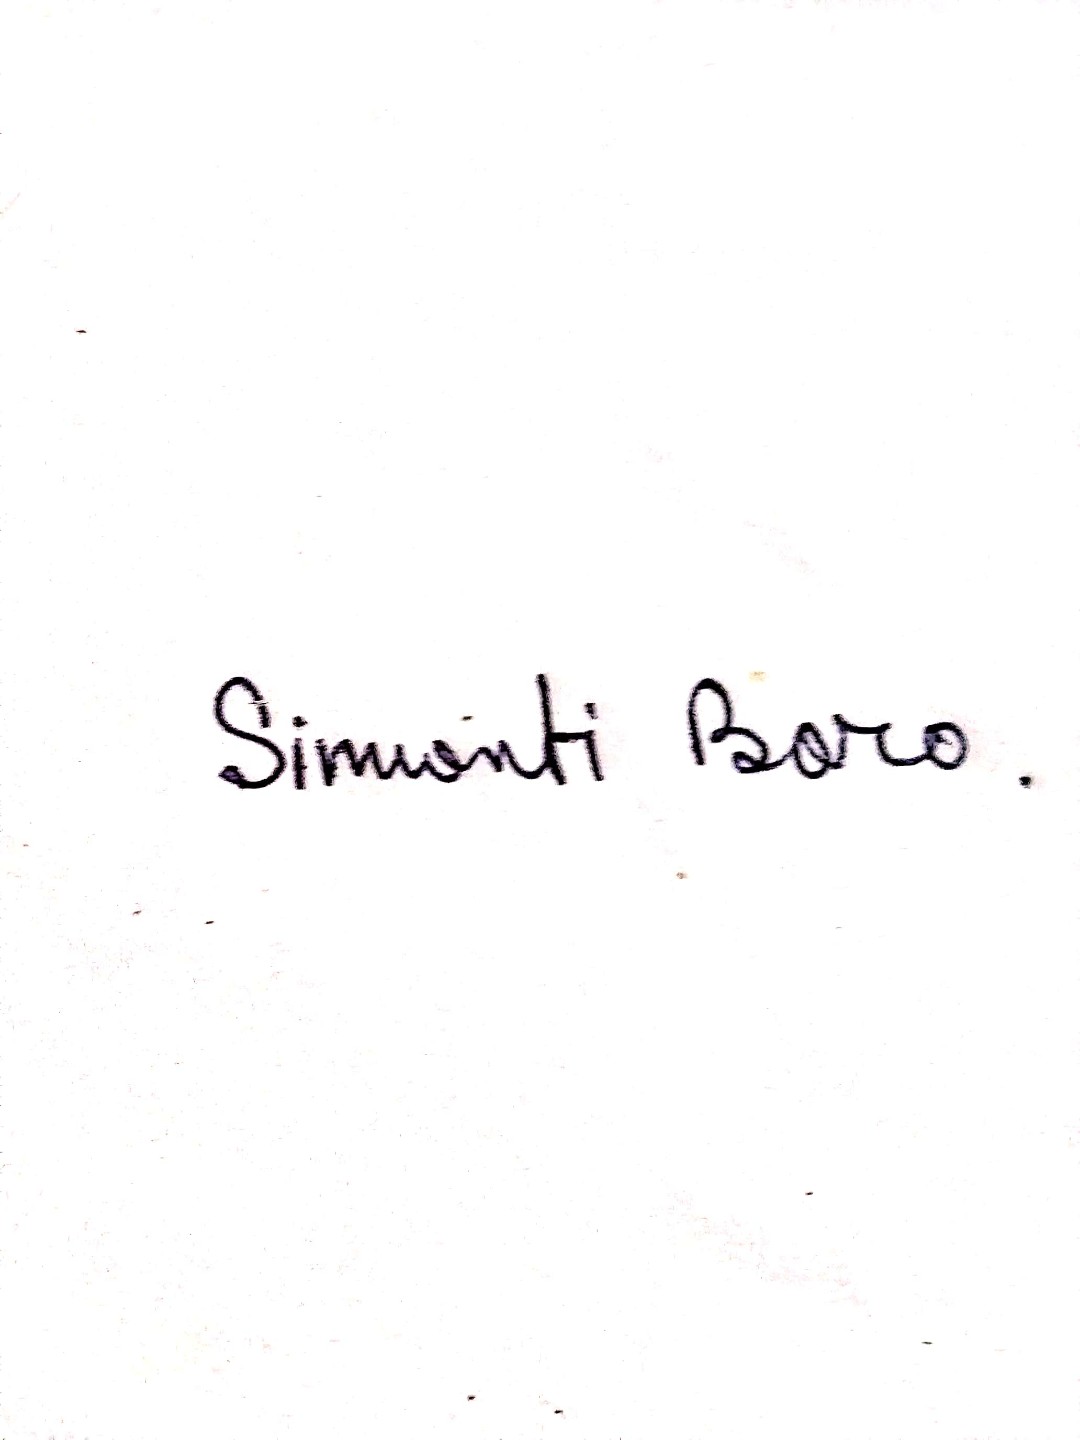 Simonti Boro.